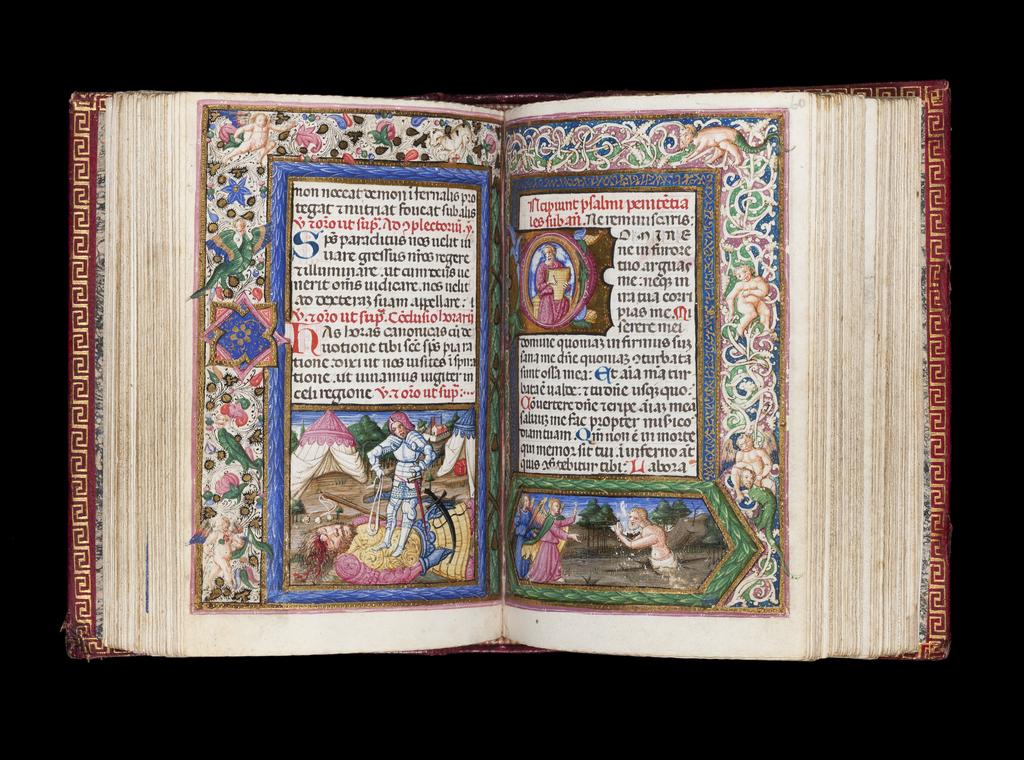 non noceat demon ĩfernalis pro
tegat ⁊ nutriat foueat sub alis
℣ ⁊ oro̅ ut sup̃. Ad ꝯpletoriũ. ℣.
Spũs paraclitus nos uelit in
uare gressus nr̃os regere
⁊ illuminare . ut cum deus ue
nerit om̃s iudicare . nos uelit
ad dexterã suam apellare :
℣. ⁊ oro̅ ut sup̃. Cõclusio horarũ
Has horas canonicas cũ de
uotione tibi scẽ spũs pia ra
tione . dixi ut nos uisites ĩspira
tione . ut uiuamus iugiter in
celi regione ℣. ⁊ oro̅ ut sup̃ :
Incipiunt psalmi penitẽtia
les sub añ. Ne reminiscaris :
DOMINE
ne in furore
tuo arguas
me : neqꝫ in
ira tua corri
pias me. Mi
serere mei
domine quoniaꝫ infirmus suꝫ
sana me dñe quoniaꝫ ꝯturbata
sunt ossa mea : Et aĩa mea tur
bata ẽ ualde : ⁊ tu dñe usqꝫ quo :
Cõuertere dñe ⁊ eripe aĩaꝫ meã
saluuꝫ me fac propter mĩsico
diam tuam . Qm̃ non ẽ in morte
qui memor sit tui . ĩ inferno aũt
quis ꝯfitebitur tibi : Labora
60